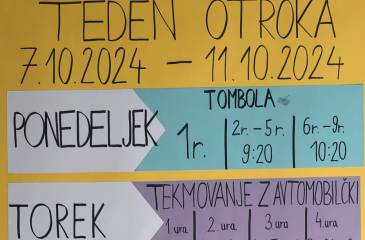 TEDEN OTROKA
7.10.2024 – 11.10.2024
TOMBOLA
PONEDELJEK
1r.
2r. – 5r.
9:20
6r. – 9r.
10:20
TEKMOVANJE Z AVTOMOBILČKI
TOREK
1.ura
2.ura
3.ura
4.ura